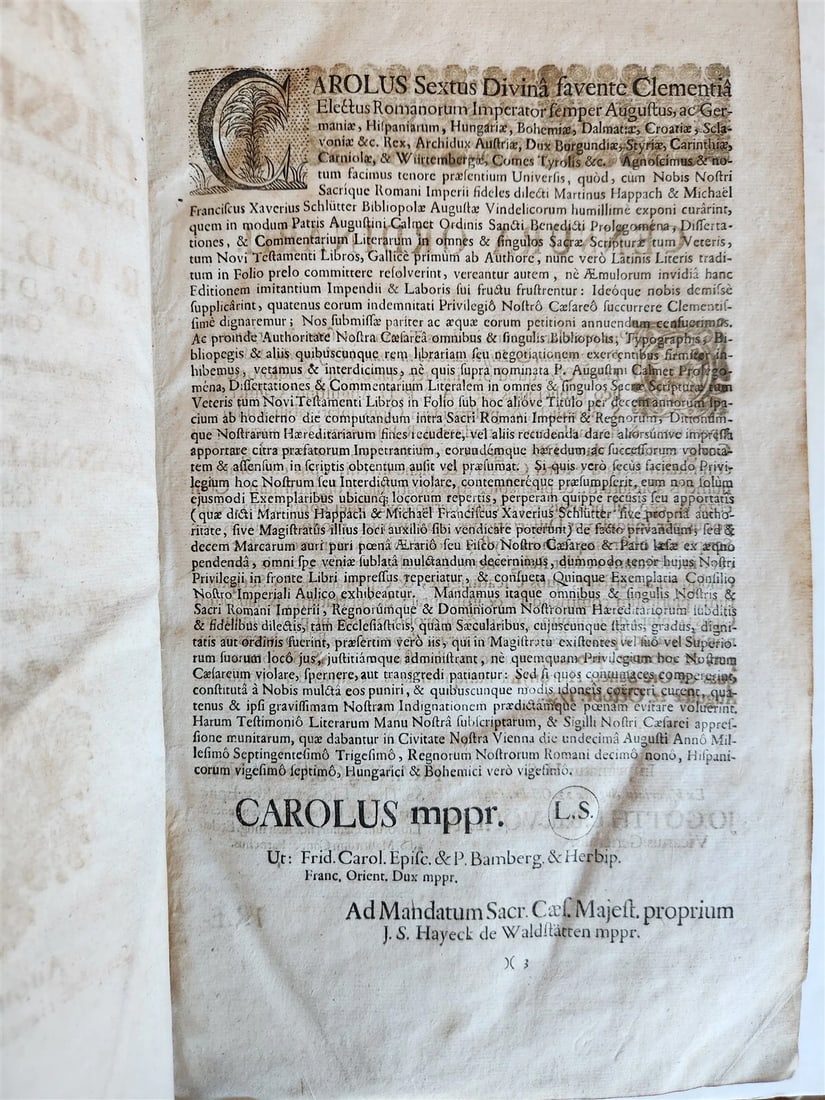 CAROLUS Sextus Divinâ favente Clementiâ
Electus Romanorum Imperator ſemper Auguſtus, ac Ger-
maniæ, Hiſpaniarum, Hungariæ, Bohemiæ, Dalmatiæ, Croatiæ, Scla-
voniæ &c. Rex, Archidux Auſtriæ, Dux Burgundiæ, Styriæ, Carinthiæ,
Carniolæ, & Würtembergæ, Comes Tyrolis &c. Agnoſcimus & no-
tum facimus tenore præſentium Univerſis, quòd, cùm Nobis Noſtri
Sacrique Romani Imperii fideles dilecti Martinus Happach & Michaël
Franciſcus Xaverius Schlütter Bibliopolæ Auguſtæ Vindelicorum humillimè exponi curârint,
quem in modum Patris Auguſtini Calmet Ordinis Sancti Benedicti Prolegomena, Diſſerta-
tiones, & Commentarium Literarum in omnes & ſingulos Sacræ Scripturæ tum Veteris,
tum Novi Teſtamenti Libros, Gallicè primum ab Authore, nunc verò Latinis Literis tradi-
tum in Folio prelo committere reſolverint, vereantur autem, nè Æmulorum invidiâ hanc
Editionem imitantium Impendii & Laboris ſui fructu fruſtrentur: Ideóque nobis demiſsè
ſupplicârint, quatenus eorum indemnitati Privilegiô Noſtrô Cæſareô ſuccurrere Clementiſ-
ſimè dignaremur; Nos ſubmiſſæ pariter ac æquæ eorum petitioni annuendum cenſuerimus.
Ac proinde Authoritate Noſtra Cæſareâ omnibus & ſingulis Bibliopolis, Typographis, Bi-
bliopegis & aliis quibuscunque rem librariam ſeu negotiationem exercentibus firmiter in-
hibemus, vetamus & interdicimus, nè quis ſupra nominata P. Auguſtini Calmet Prolego-
ména, Diſſertationes & Commentarium Literalem in omnes & ſingulos Sacræ Scripturæ tum
Veteris tum Novi Teſtamenti Libros in Folio ſub hoc alióve Titulo per decem annorum ſpa-
cium ab hodierno die computandum intra Sacri Romani Imperii & Regnorum, Ditionúm-
que Noſtrarum Hæreditariarum fines recudere, vel aliis recudenda dare aliorsúmve impreſſa
apportare citra præfatorum Impetrantium, eorundémque hæredum ac ſucceſſorum volunta-
tem & aſſenſum, in ſcriptis obtentum auſit vel præſumat. Si quis verò ſecùs faciendo Privi-
legium hoc Noſtrum ſeu Interdictum violare, contemneréque præſumpſerit, eum non ſolùm
ejusmodi Exemplaribus ubicunq; locorum repertis, perperam quippe recusis ſeu apportatis
(quæ dicti Martinus Happach & Michaël Franciſcus Xaverius Schlütter ſive propriâ autho-
ritate, ſive Magiſtratûs illius loci auxiliô ſibi vendicare poterunt) de facto privandum; ſed &
decem Marcarum auri puri pœnâ Ærariô ſeu Fiſco Noſtro Cæſareo & Parti læſæ ex æquo
pendendâ, omni ſpe veniæ ſublatâ mulctandum decernimus, dummodo tenor hujus Noſtri
Privilegii in fronte Libri impreſſus reperiatur, & conſueta Quinque Exemplaria Conſilio
Noſtro Imperiali Aulico exhibeantur. Mandamus itaque omnibus & ſingulis Noſtris &
Sacri Romani Imperii, Regnorúmque & Dominiorum Noſtrorum Hæreditariorum ſubditis
& fidelibus dilectis, tam Eccleſiaſticis, quàm Sæcularibus, cujuscunque ſtatus, gradus, digni-
tatis aut ordinis fuerint, præſertim verò iis, qui in Magiſtratu exiſtentes vel ſuô vel Superio-
rum ſuorum locô jus, juſtitiámque adminiſtrant, nè quemquam Privilegium hoc Noſtrum
Cæſareum violare, ſpernere, aut transgredi patiantur: Sed ſi quos contumaces compererint,
conſtitutâ à Nobis mulctâ eos puniri, & quibuscunque modis idoneis coërceri curent, qua-
tenus & ipſi graviſſimam Noſtram Indignationem prædictámque pœnam evitare voluerint.
Harum Teſtimoniô Literarum Manu Noſtrâ ſubſcriptarum, & Sigilli Noſtri Cæſarei appreſ-
ſione munitarum, quæ dabantur in Civitate Noſtra Vienna die undecimâ Auguſti Annô Mil-
leſimô Septingenteſimô Trigeſimô, Regnorum Noſtrorum Romani decimô nonô, Hiſpani-
corum vigeſimô ſeptimô, Hungarici & Bohemici verò vigeſimô.
CAROLUS mppr. L.S.
Ut: Frid. Carol. Epiſc. & P. Bamberg. & Herbip.
Franc. Orient. Dux mppr.
Ad Mandatum Sacr. Cæſ. Majeſt. proprium
J. S. Hayeck de Waldſtätten mppr.
)( 3